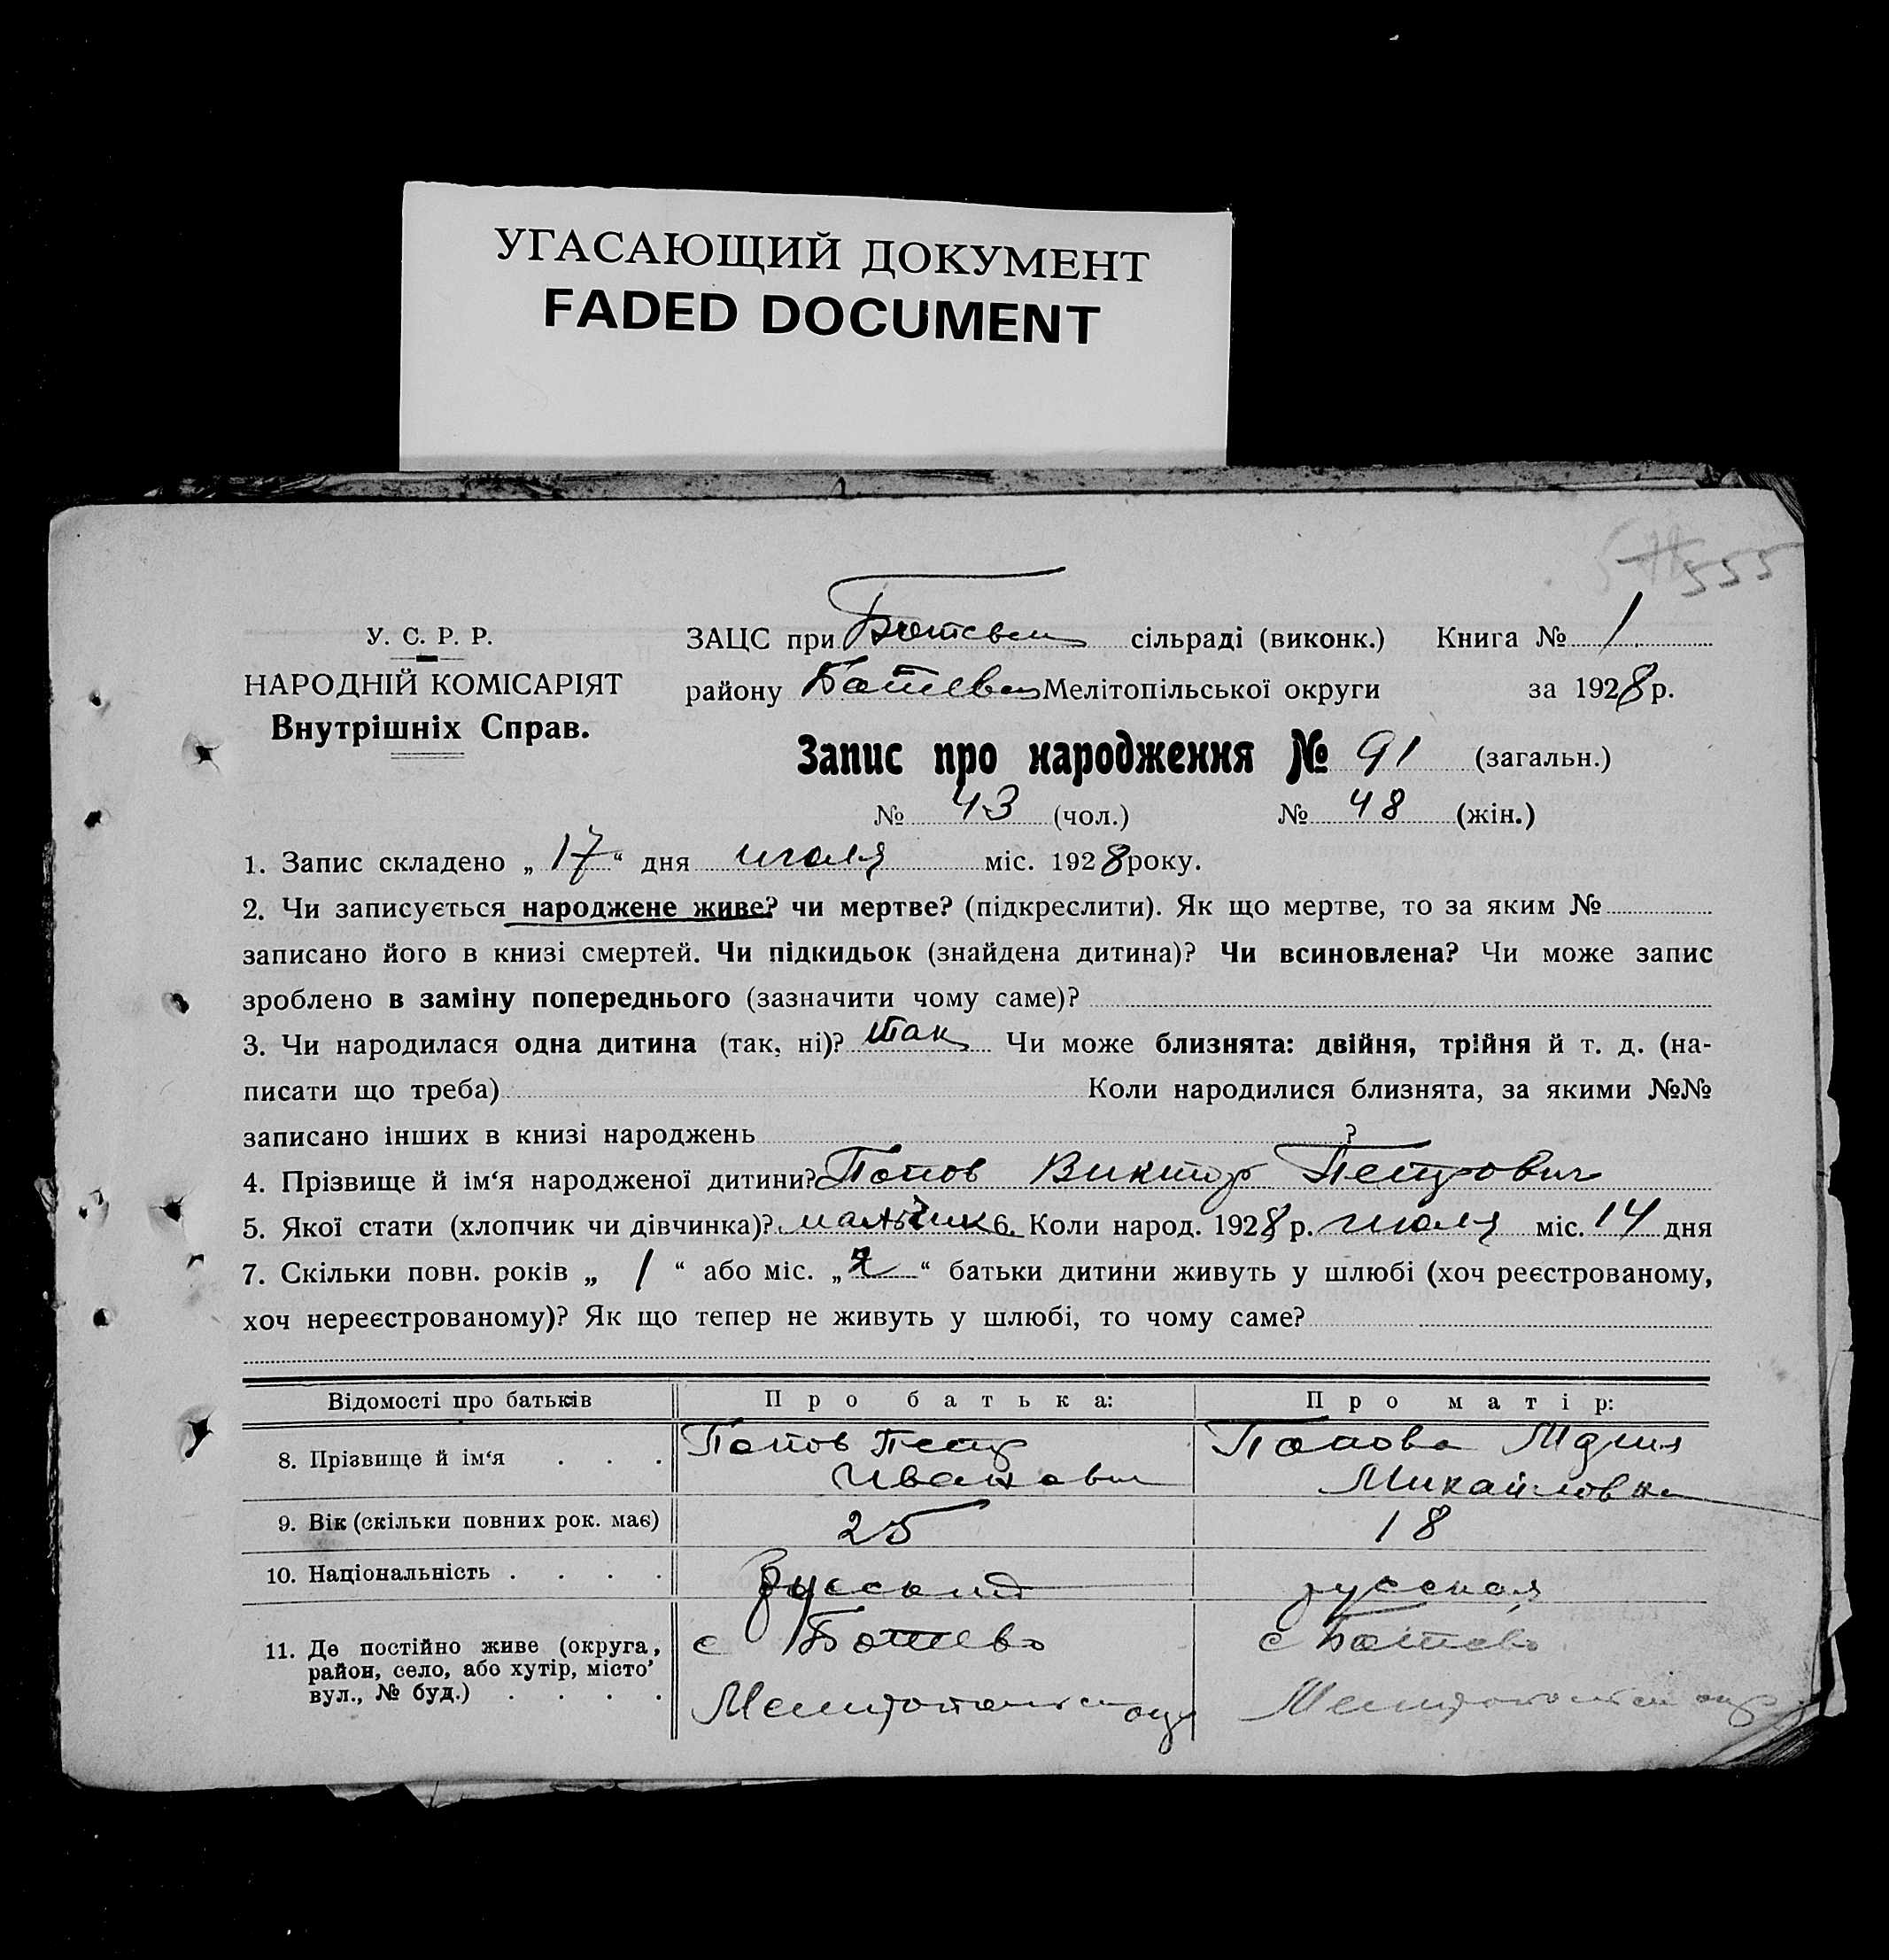 УГАСАЮЩИЙ ДОКУМЕНТ
FADED DOCUMENT
555
У. С. Р. Р.
НАРОДНІЙ КОМІСАРІЯТ
Внутрішніх Справ.
ЗАЦС при Ботевск сільраді (виконк.) Книга № 1
району Ботиевск Мелітопільської округи за 1928 р.
Запис про народження № 91 (загальн.)
№ 43 (чол.) № 48 (жін.)
1. Запис складено „ 17 “ дня июля міс. 1928 року.
2. Чи записується народжене живе? чи мертве? (підкреслити). Як що мертве, то за яким №
записано його в книзі смертей. Чи підкидьок (знайдена дитина)? Чи всиновлена? Чи може запис
зроблено в заміну попереднього (зазначити чому саме)?
3. Чи народилася одна дитина (так, ні)? так Чи може близнята: двійня, трійня й т. д. (на-
писати що треба) Коли народилися близнята, за якими №№
записано інших в книзі народжень ?
4. Прізвище й ім‘я народженої дитини? Попов Виктор Петрович
5. Якої стати (хлопчик чи дівчинка)? мальчик 6. Коли народ. 1928 р. июля міс. 14 дня
7. Скільки повн. років „ 1 “ або міс. „ “ батьки дитини живуть у шлюбі (хоч реєстрованому,
хоч нереєстрованому)? Як що тепер не живуть у шлюбі, то чому саме?
Відомості про батьків Про батька: Про матір:
8. Прізвище й ім‘я . . . Попов Петр Иванович Попова Мария Михайловна
9. Вік (скільки повних рок. має) 25 18
10. Національність . . . . русский русская
11. Де постійно живе (округа, район, село, або хутір, місто, вул., № буд.) . . . . с Ботиево Мелитопольск окр с Ботиево Мелитопольск окр